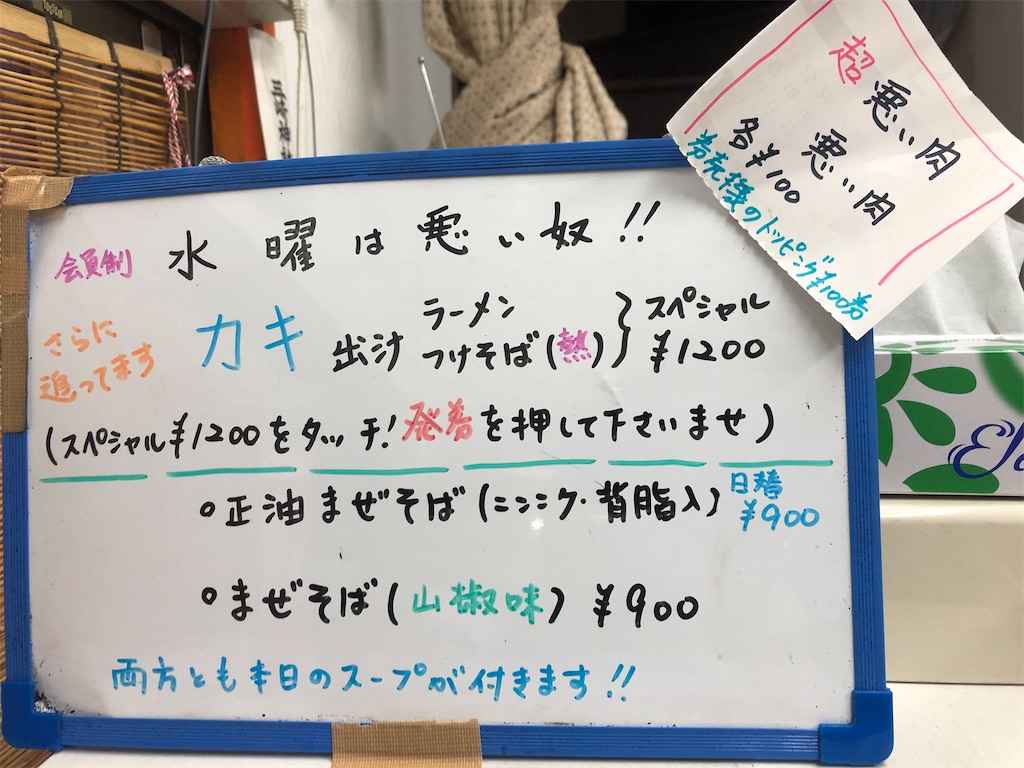 超悪い肉
悪い肉
各¥100
券売機のトッピング¥100券
会員制 水曜は悪い奴!!
さらに
追ってます
カキ出汁
ラーメン
つけそば(熱)
スペシャル
¥1200
(スペシャル¥1200をタッチ!発券を押して下さいませ)
○正油まぜそば(ニンニク・背脂入)
日替
¥900
○まぜそば(山椒味) ¥900
両方とも本日のスープが付きます!!